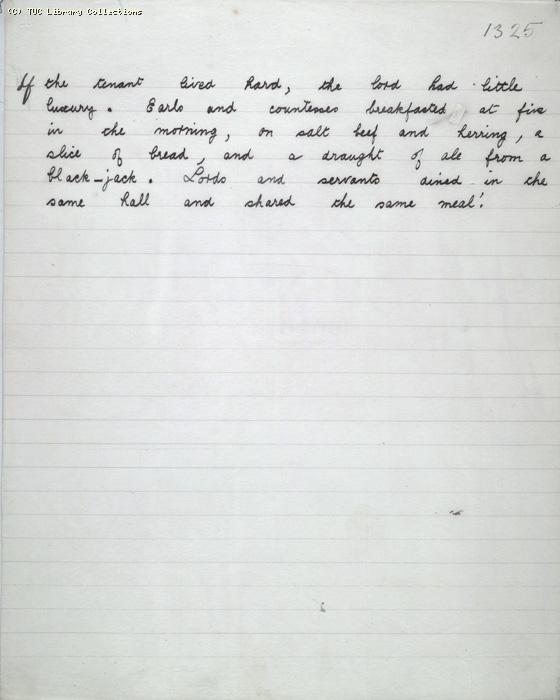 (C) TUC Library Collections
1325
If the tenant lived hard, the lord had little
luxury. Earls and countesses breakfasted at five
in the morning, on salt beef and herring, a
slice of bread, and a draught of ale from a
black-jack. Lords and servants dined in the
same hall and shared the same meal!